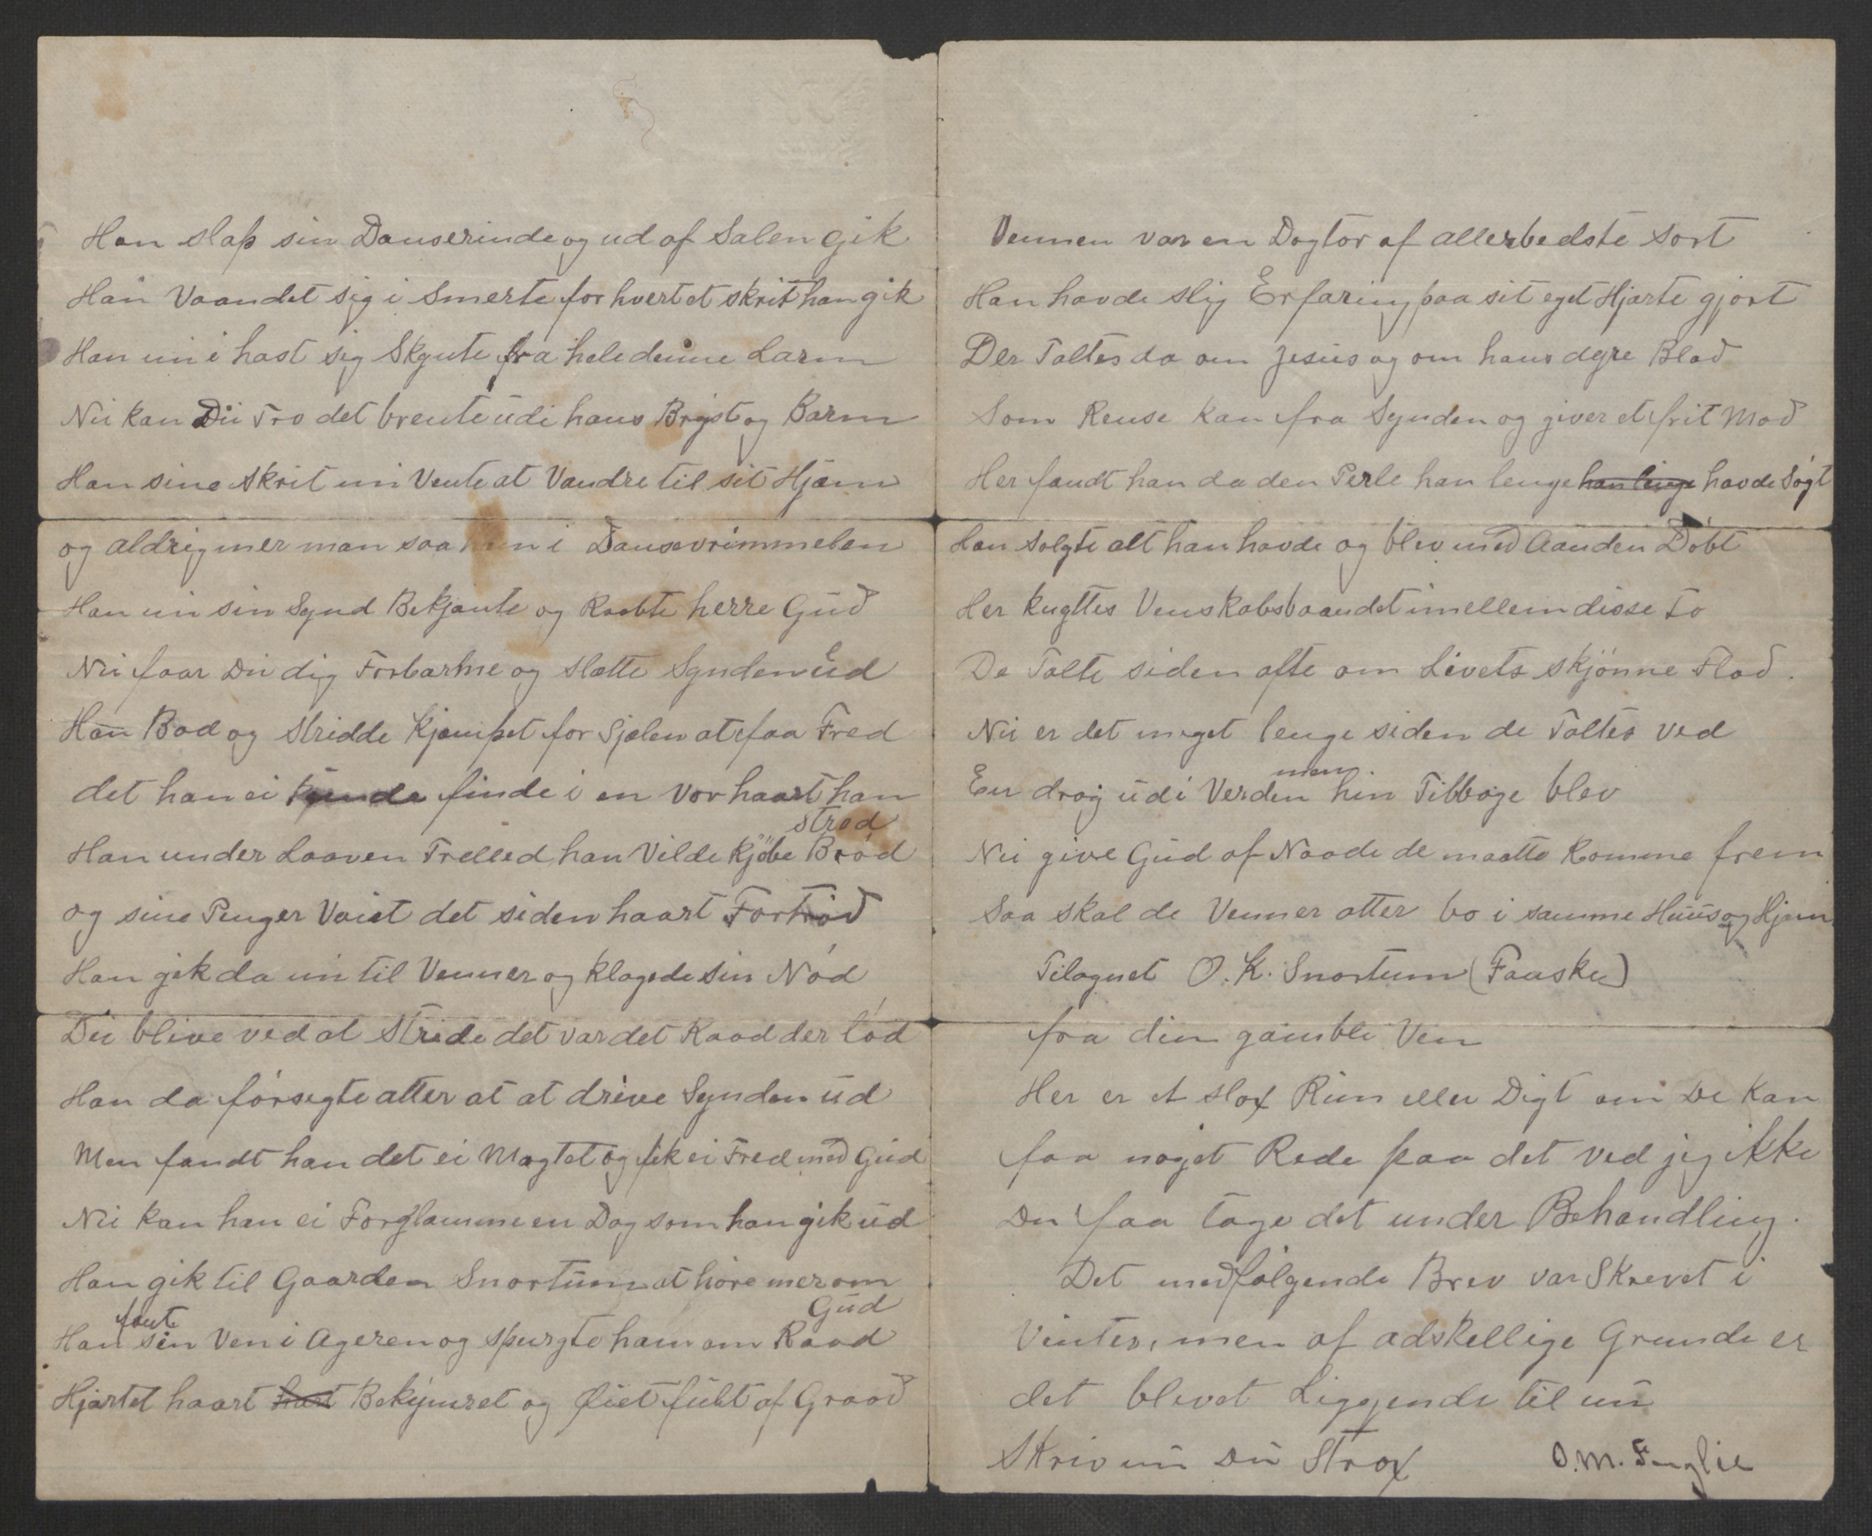 Han slap sin Danserinde og ud af Salen gik
Han Vaandet sig i Smerte for hvert et skrit han gik
Han nu i hast sig Skynte fra hele denne Larm
Nu kan Du Tro det brente udi hans Bryst og Barm
Han sine skrit nu Vente at Vandre til sit Hjæm
og aldrig mer man saa ham i Dansevrimmelen
Han nu sin Synd Bekjænte og Raabte herre Gud
Nu faar Du dig Forbarme og slætte Synden ud
Han Bad og stridde kjæmpet for Sjælen at faa Fred
det han ei kunde finde i en Vor haart han
stred
Han under Laaven Trelled han Vilde kjøbe Brød
og sine Penger Vaiet det siden haart Fortrød
Han gik da nu til Venner og klagede sin Nød
Du blive ved at Stride det var det Raad der lød
Han da førsøgte atter at at drive Synden ud
Men fandt han det ei Magtet og fik ei Fred med Gud
Nu kan han ei Forglæmme en Dag som han gik ud
Han gik til Gaarden Snortum at høre mer om
Gud
Han fant sin Ven i Ageren og spurgte ham om Raad
Hjærtet haart haart Bekymret og Øiet fuldt af Graad
Vennen var en Dogtor af allerbedste sort
Han havde slig Erfaring paa sit eget Hjærte gjort
Der Taltes da om Jesus og om hans dyre Blod
Som Rense kan fra Synden og giver et frit Mod
Her fandt han da den Perle han lenge han lenge havde Søgt
Han Solgte alt han havde og blev med Aanden Døbt
Her knyttes Venskabsbaandet imellem disse To
De Talte siden ofte om Livets skjønne Flod.
Nu er det meget lenge siden de Taltes ved
En drog ud i Verden men hin Tilbage blev
Nu give Gud af Naade de maatte komme frem
Saa skal de Venner atter bo i samme Huus og Hjem
Tilegnet O. K. Snortum (Faaske)
fra din gamble Ven
Her er et slag Rim eller Digt om De kan
faa noget Rede paa det ved jeg ikke
Du faa Tage det under Behandling.
Det medfølgende Brev var Skrevet i
Vinter, men af adskellige Grunde er
det blevet Liggende til nu
Skriv nu Du Strax O. M. Fuglie